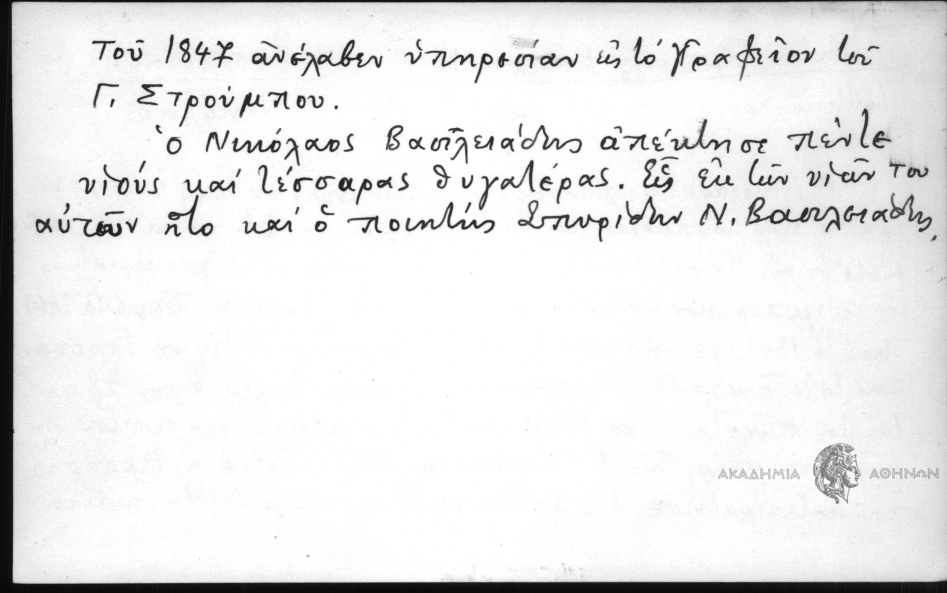 Τοῦ 1847 ἀνέλαβεν ὑπηρεσίαν εἰς τό Γραφεῖον τοῦ
Γ. Στρούμπου.
Ὁ Νικόλαος Βασιλειάδης ἀπέκτησε πέντε
υἱούς καί τέσσαρας θυγατέρας. Εἷς ἐκ τῶν υἱῶν του
αὐτῶν ἦτο καί ὁ ποιητής Σπυρίδων Ν. Βασιλειάδης.
ΑΚΑΔΗΜΙΑ ΑΘΗΝΩΝ